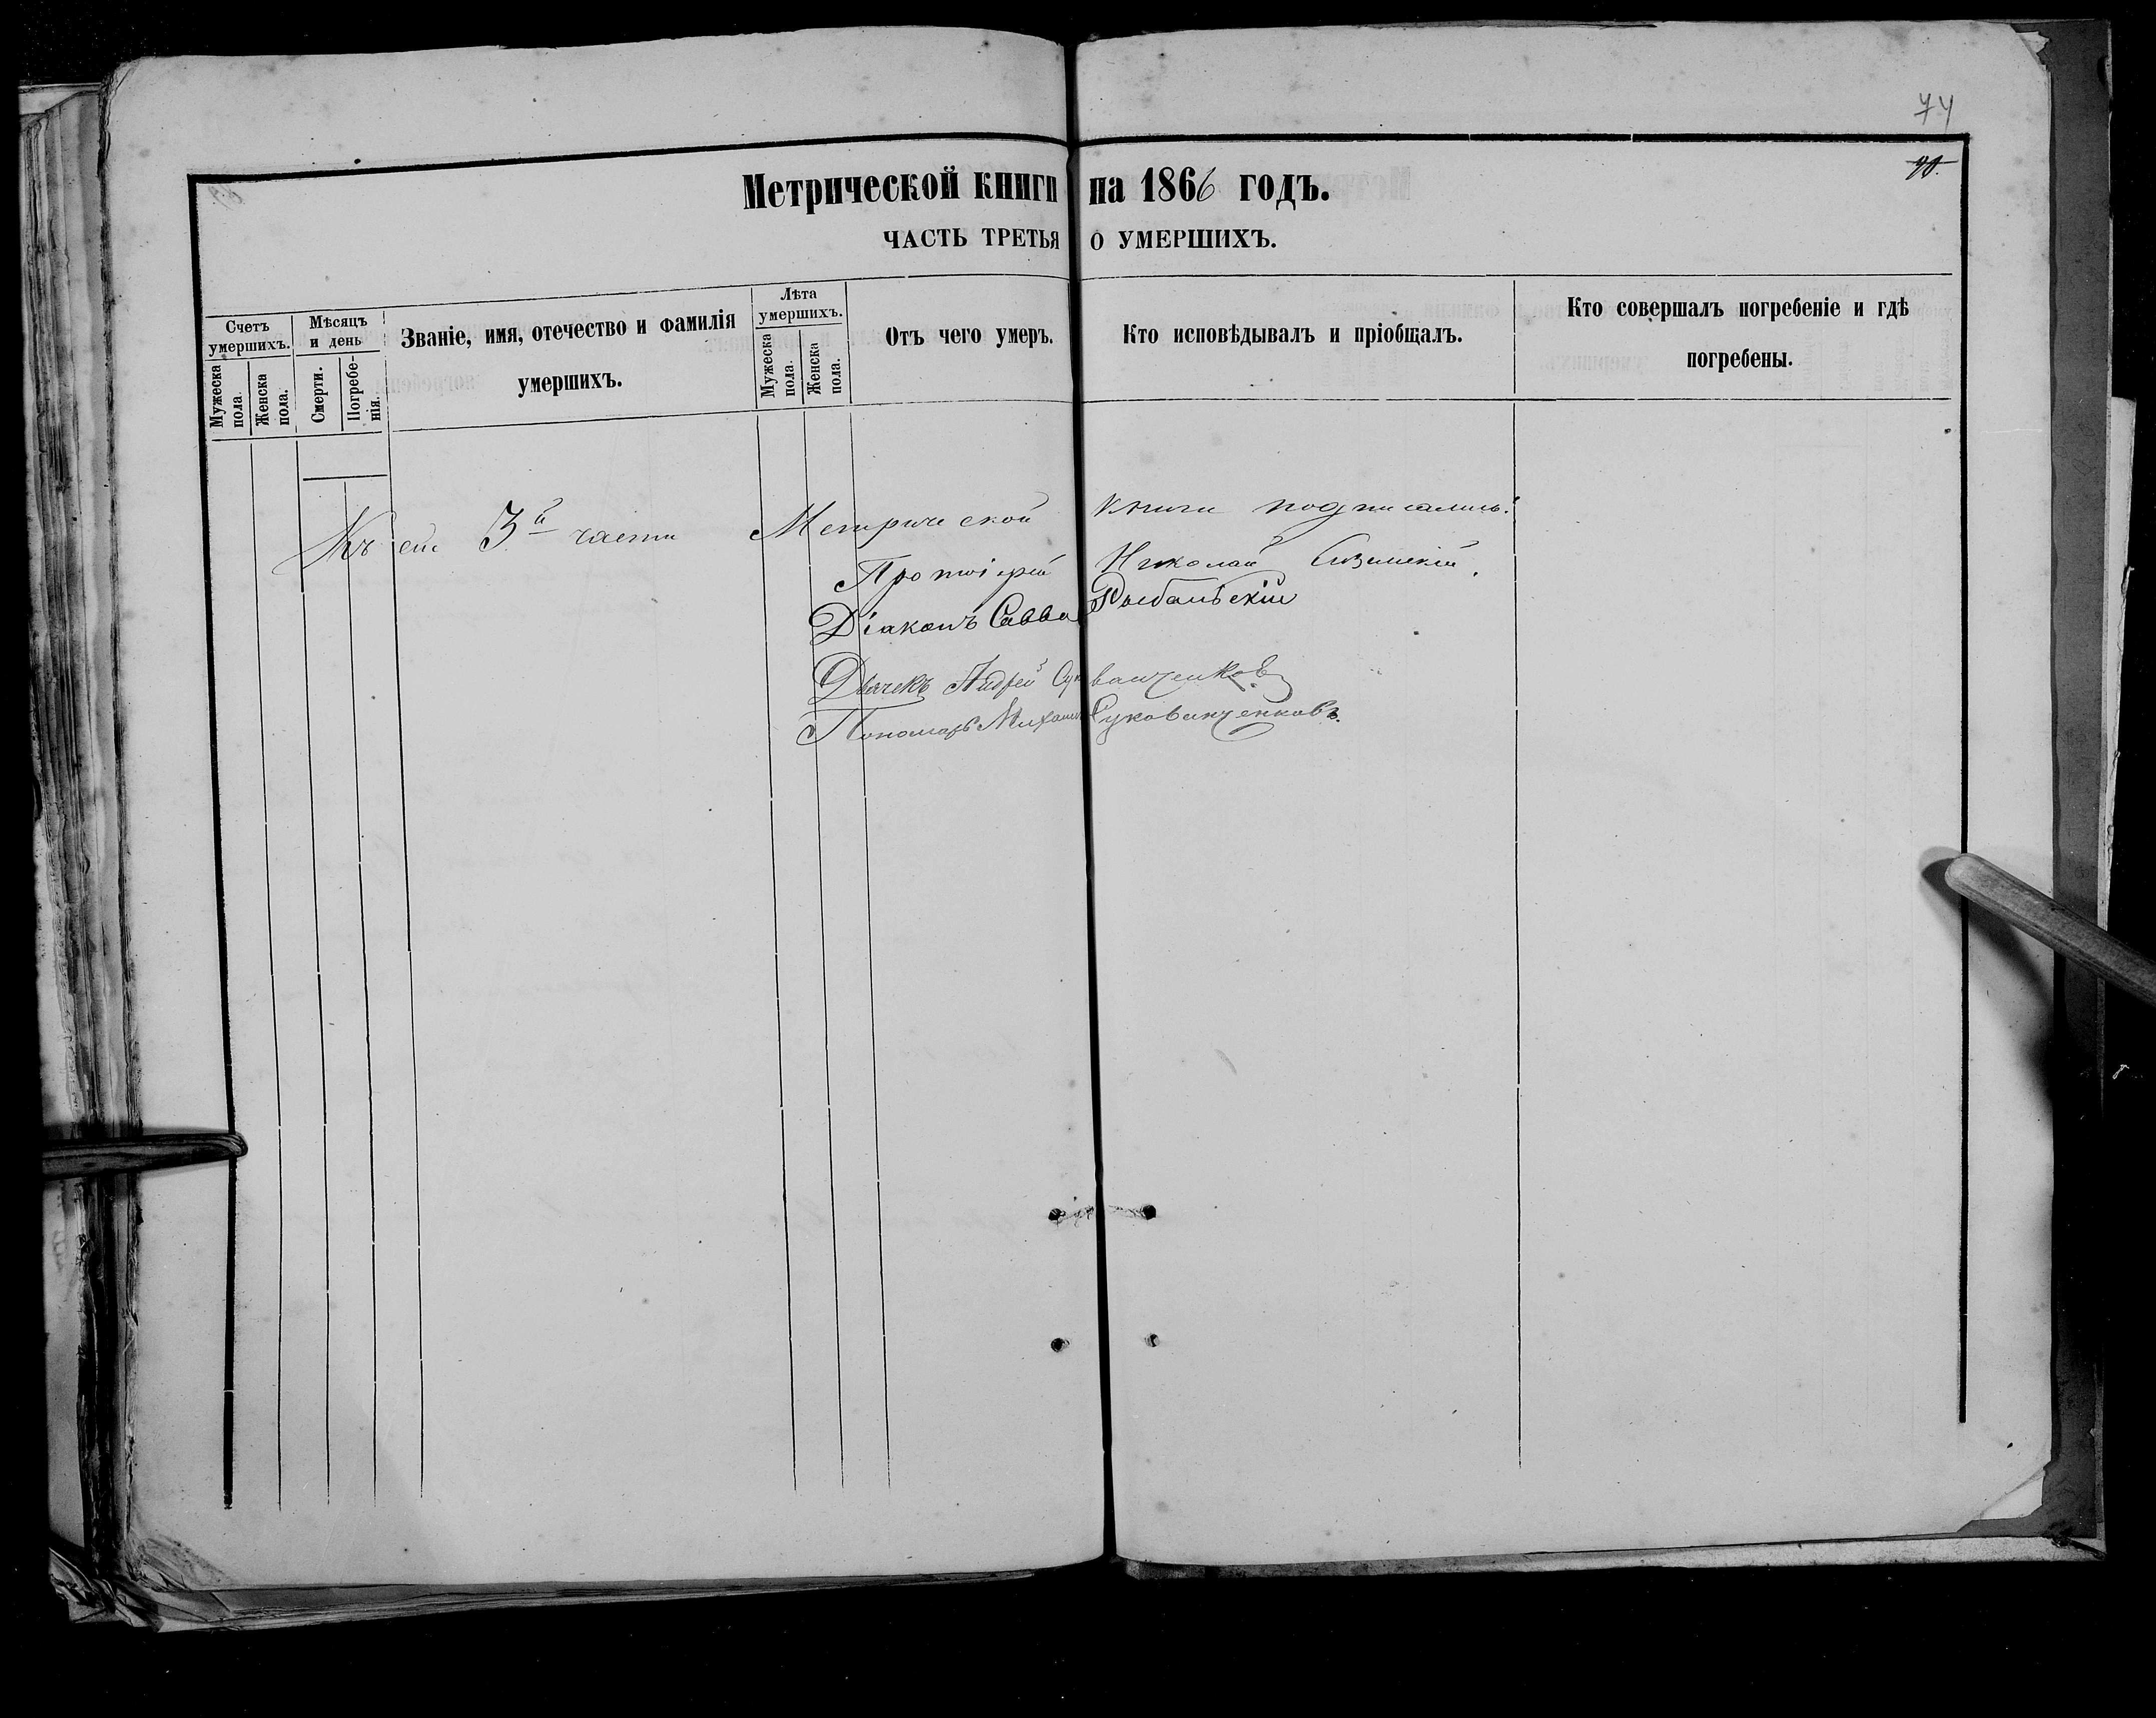 74
Метрической книги на 1866 годъ.
ЧАСТЬ ТРЕТЬЯ О УМЕРШИХЪ.
Счетъ умершихъ.
Мужеска пола.
Женска пола.
Мѣсяцъ и день
Смерти.
Погребе-нія.
Званіе, имя, отечество и фамилія
умершихъ.
Лѣта умершихъ.
Мужеска пола.
Женска пола.
Отъ чего умеръ.
Кто исповѣдывалъ и пріобщалъ.
Кто совершалъ погребеніе и гдѣ
погребены.
Къ сей 3й части Метрической книги подписались:
Протоіерей Николай
Діаконъ Савва Рыбальскій
Дьячекъ Андрей
Пономарь Михаилъ Сукованченковъ.